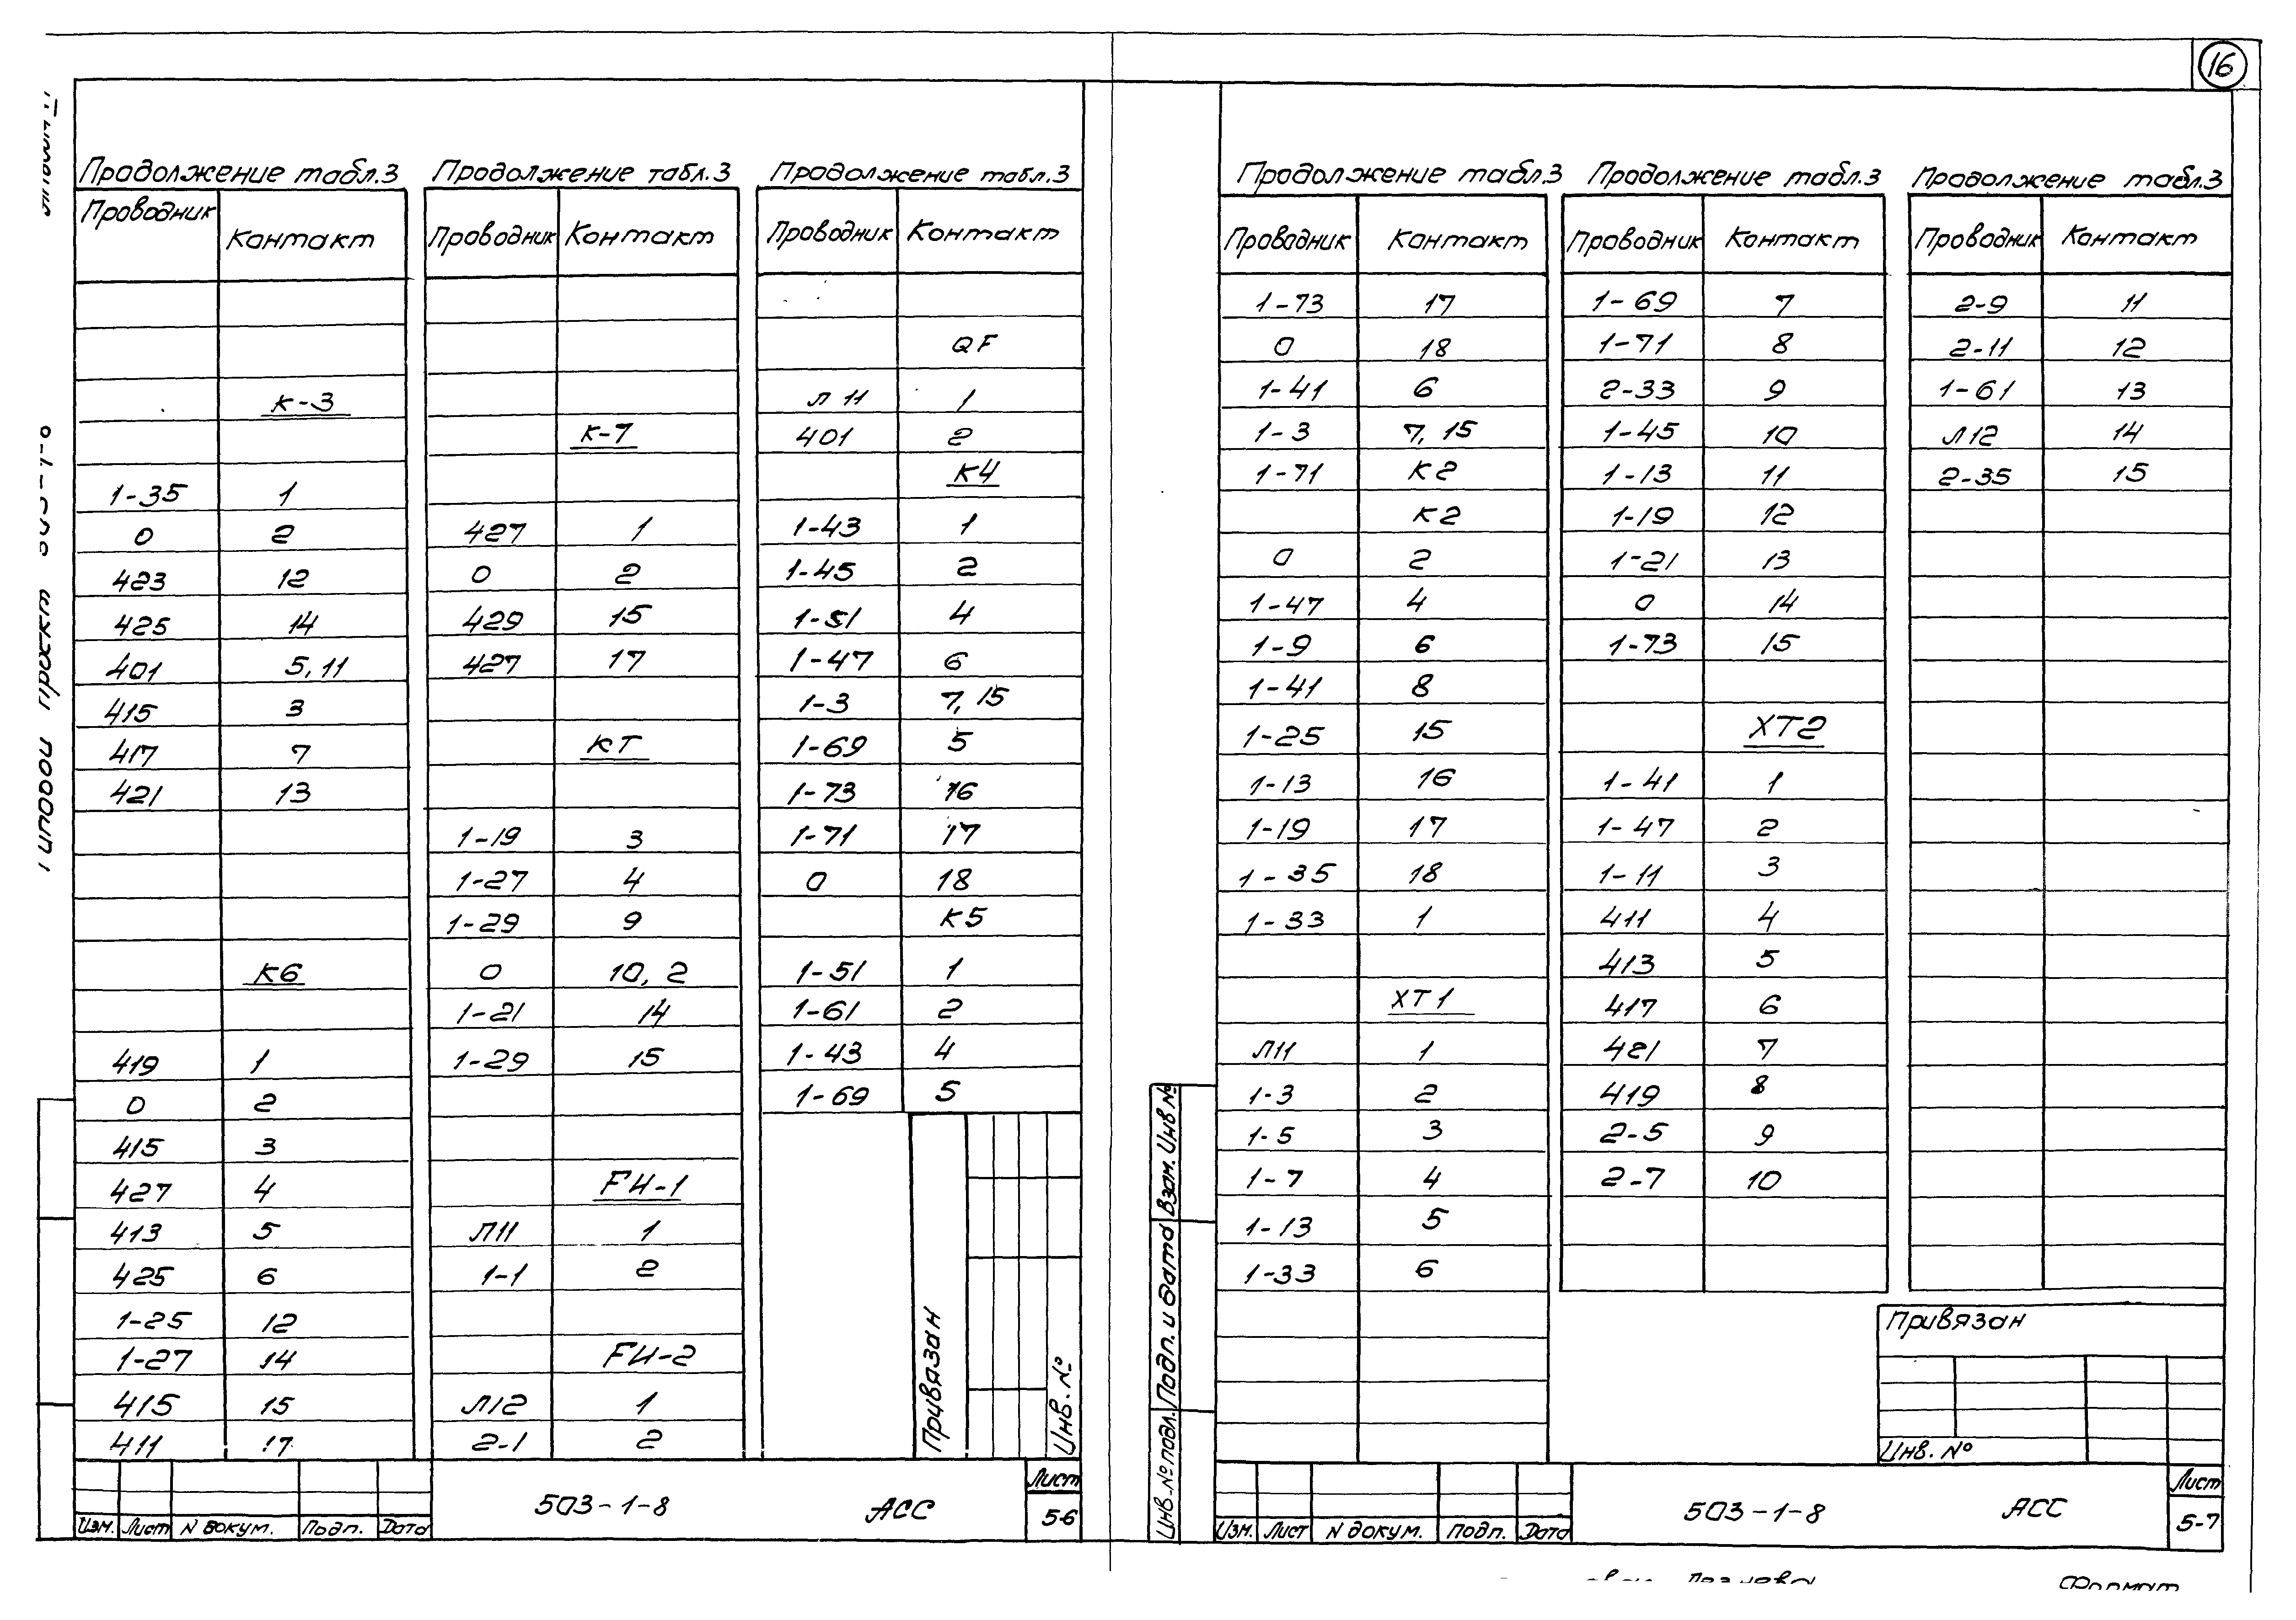 16
Продолжение табл.3
Проводник Контакт
К-3
1-35 1
0 2
423 12
425 14
401 5,11
415 3
417 7
421 13
К6
419 1
0 2
415 3
427 4
413 5
425 6
1-25 12
1-27 14
415 15
411 17
Продолжение табл.3
Проводник Контакт
К-7
427 1
0 2
429 15
427 17
КТ
1-19 3
1-27 4
1-29 9
0 10, 2
1-21 14
1-29 15
FИ-1
Л11 1
1-1 2
FИ-2
Л12 1
2-1 2
Продолжение табл.3
Проводник Контакт
QF
Л 11 1
401 2
К4
1-43 1
1-45 2
1-51 4
1-47 6
1-3 7, 15
1-69 5
1-73 16
1-71 17
0 18
К5
1-51 1
1-61 2
1-43 4
1-69 5
Привязан
Инв. №
Изм. Лист N докум. Подп. Дата
503-1-8 АСС
Лист
5-6
Продолжение табл.3
Проводник Контакт
1-73 17
0 18
1-41 6
1-3 7, 15
1-71 К2
К2
0 2
1-47 4
1-9 6
1-41 8
1-25 15
1-13 16
1-19 17
1-35 18
1-33 1
ХТ1
Л11 1
1-3 2
1-5 3
1-7 4
1-13 5
1-33 6
Продолжение табл.3
Проводник Контакт
1-69 7
1-71 8
2-33 9
1-45 10
1-13 11
1-19 12
1-21 13
0 14
1-73 15
ХТ2
1-41 1
1-47 2
1-11 3
411 4
413 5
417 6
421 7
419 8
2-5 9
2-7 10
Продолжение табл.3
Проводник Контакт
2-9 11
2-11 12
1-61 13
Л12 14
2-35 15
Привязан
Инв. №
Инв. № подл. Подп. и дата Взам. Инв №
Изм. Лист N докум. Подп. Дата
503-1-8 АСС
Лист
5-7
Формат